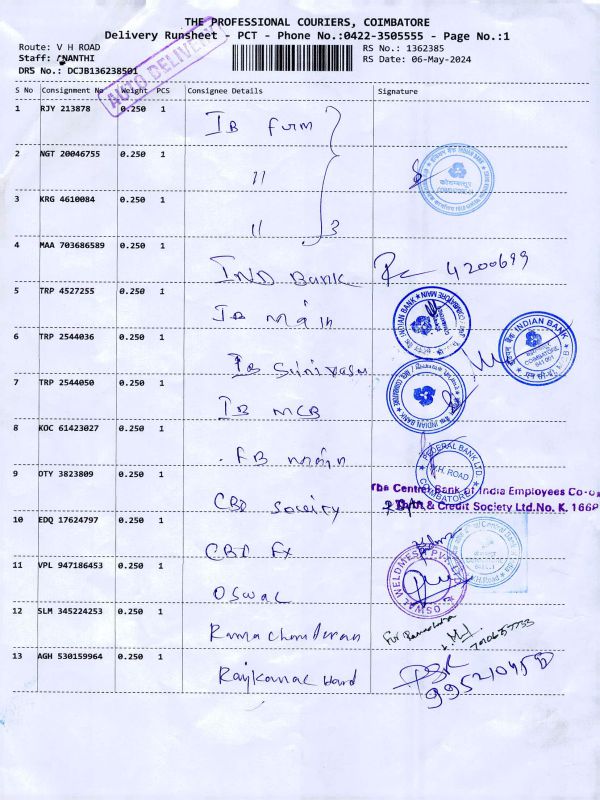 THE PROFESSIONAL COURIERS, COIMBATORE
Delivery Runsheet - PCT - Phone No.:0422-3505555 - Page No.:1
Route: V H ROAD
RS No.: 1362385
Staff: ANANTHI
RS Date: 06-May-2024
DRS No.: DCJB136238501
AUTO DELIVERY
S No Consignment No Weight PCS Consignee Details Signature
1 RJY 213878 0.250 1 IB firm
2 NGT 20046755 0.250 1 "
3 KRG 4610084 0.250 1 " 3
4 MAA 703686589 0.250 1 IND Bank 4200699
5 TRP 4527255 0.250 1 IB main
6 TRP 2544036 0.250 1 IB Srinivasa
INDIAN BANK
COIMBATORE
641 001
7 TRP 2544050 0.250 1 IB MCB
INDIAN BANK
8 KOC 61423027 0.250 1 FB main
FEDERAL BANK LTD.
V.H. ROAD
COIMBATORE
9 DTY 3823809 0.250 1 CBI Society
The Central Bank of India Employees Co-op
& Credit Society Ltd.No. K. 166P
10 EDQ 17624797 0.250 1 CBI Fx
11 VPL 947186453 0.250 1 Oswal
OSWAL WELDMESH PVT LTD
12 SLM 345224253 0.250 1 Ramachandran
13 AGH 530159964 0.250 1 Rajkamal Hard